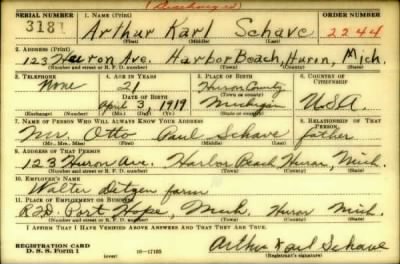 (Discharged)
SERIAL NUMBER 1. NAME (Print) ORDER NUMBER
3181 Arthur Karl Schave 2244
(First) (Middle) (Last)
2. ADDRESS (Print)
123 Huron Ave. Harbor Beach, Huron, Mich.
(Number and street or R. F. D. number) (Town) (County) (State)
3. TELEPHONE 4. AGE IN YEARS 5. PLACE OF BIRTH 6. COUNTRY OF CITIZENSHIP
None 21 Huron County
DATE OF BIRTH (Town or county)
April 3, 1919 Michigan U.S.A.
(Exchange) (Number) (Mo.) (Day) (Yr.) (State or country)
7. NAME OF PERSON WHO WILL ALWAYS KNOW YOUR ADDRESS 8. RELATIONSHIP OF THAT PERSON
Mr. Otto Paul Schave father
(Mr., Mrs., Miss) (First) (Middle) (Last)
9. ADDRESS OF THAT PERSON
123 Huron Ave. Harbor Beach Huron, Mich.
(Number and street or R. F. D. number) (Town) (County) (State)
10. EMPLOYER'S NAME
Walter Detzen farm
11. PLACE OF EMPLOYMENT OR BUSINESS
R.F.D. Port Hope, Mich. Huron Mich.
(Number and street or R. F. D. number) (Town) (County) (State)
I AFFIRM THAT I HAVE VERIFIED ABOVE ANSWERS AND THAT THEY ARE TRUE.
REGISTRATION CARD
D. S. S. Form 1 (over) 16—17105 Arthur Karl Schave
(Registrant's signature)